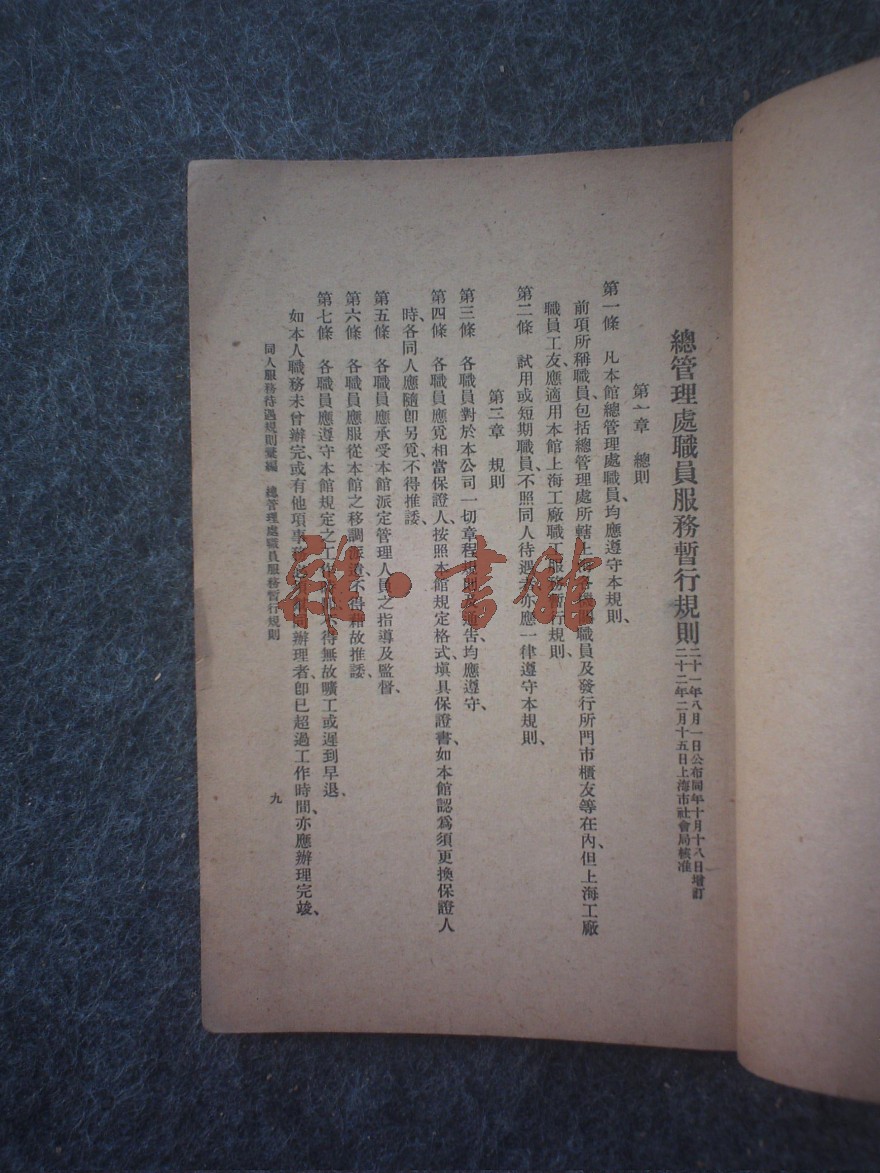 總管理處職員服務暫行規則
二十一年八月一日公布同年十月十八日增訂
二十二年二月十五日上海市社會局核准
第一章 總則
第一條 凡本館總管理處職員、均應遵守本規則、
前項所稱職員、包括總管理處所轄上海各機關職員及發行所門市櫃友等在內、但上海工廠
職員工友、應適用本館上海工廠職工服務暫行規則、
第二條 試用或短期職員、不照同人待遇者、亦應一律遵守本規則、
第二章 規則
第三條 各職員對於本公司一切章程規則及通告、均應遵守、
第四條 各職員應覓相當保證人、按照本館規定格式、填具保證書、如本館認爲須更換保證人
時、各同人應隨卽另覓、不得推諉、
第五條 各職員應承受本館派定管理人員之指導及監督、
第六條 各職員應服從本館之移調派遣、不得藉故推諉、
第七條 各職員應遵守本館規定之工作時 得無故曠工或遲到早退、
如本人職務未曾辦完、或有他項事務 辦理者、卽已超過工作時間、亦應辦理完竣、
同人服務待遇規則彙編 總管理處職員服務暫行規則
九
雜·書館